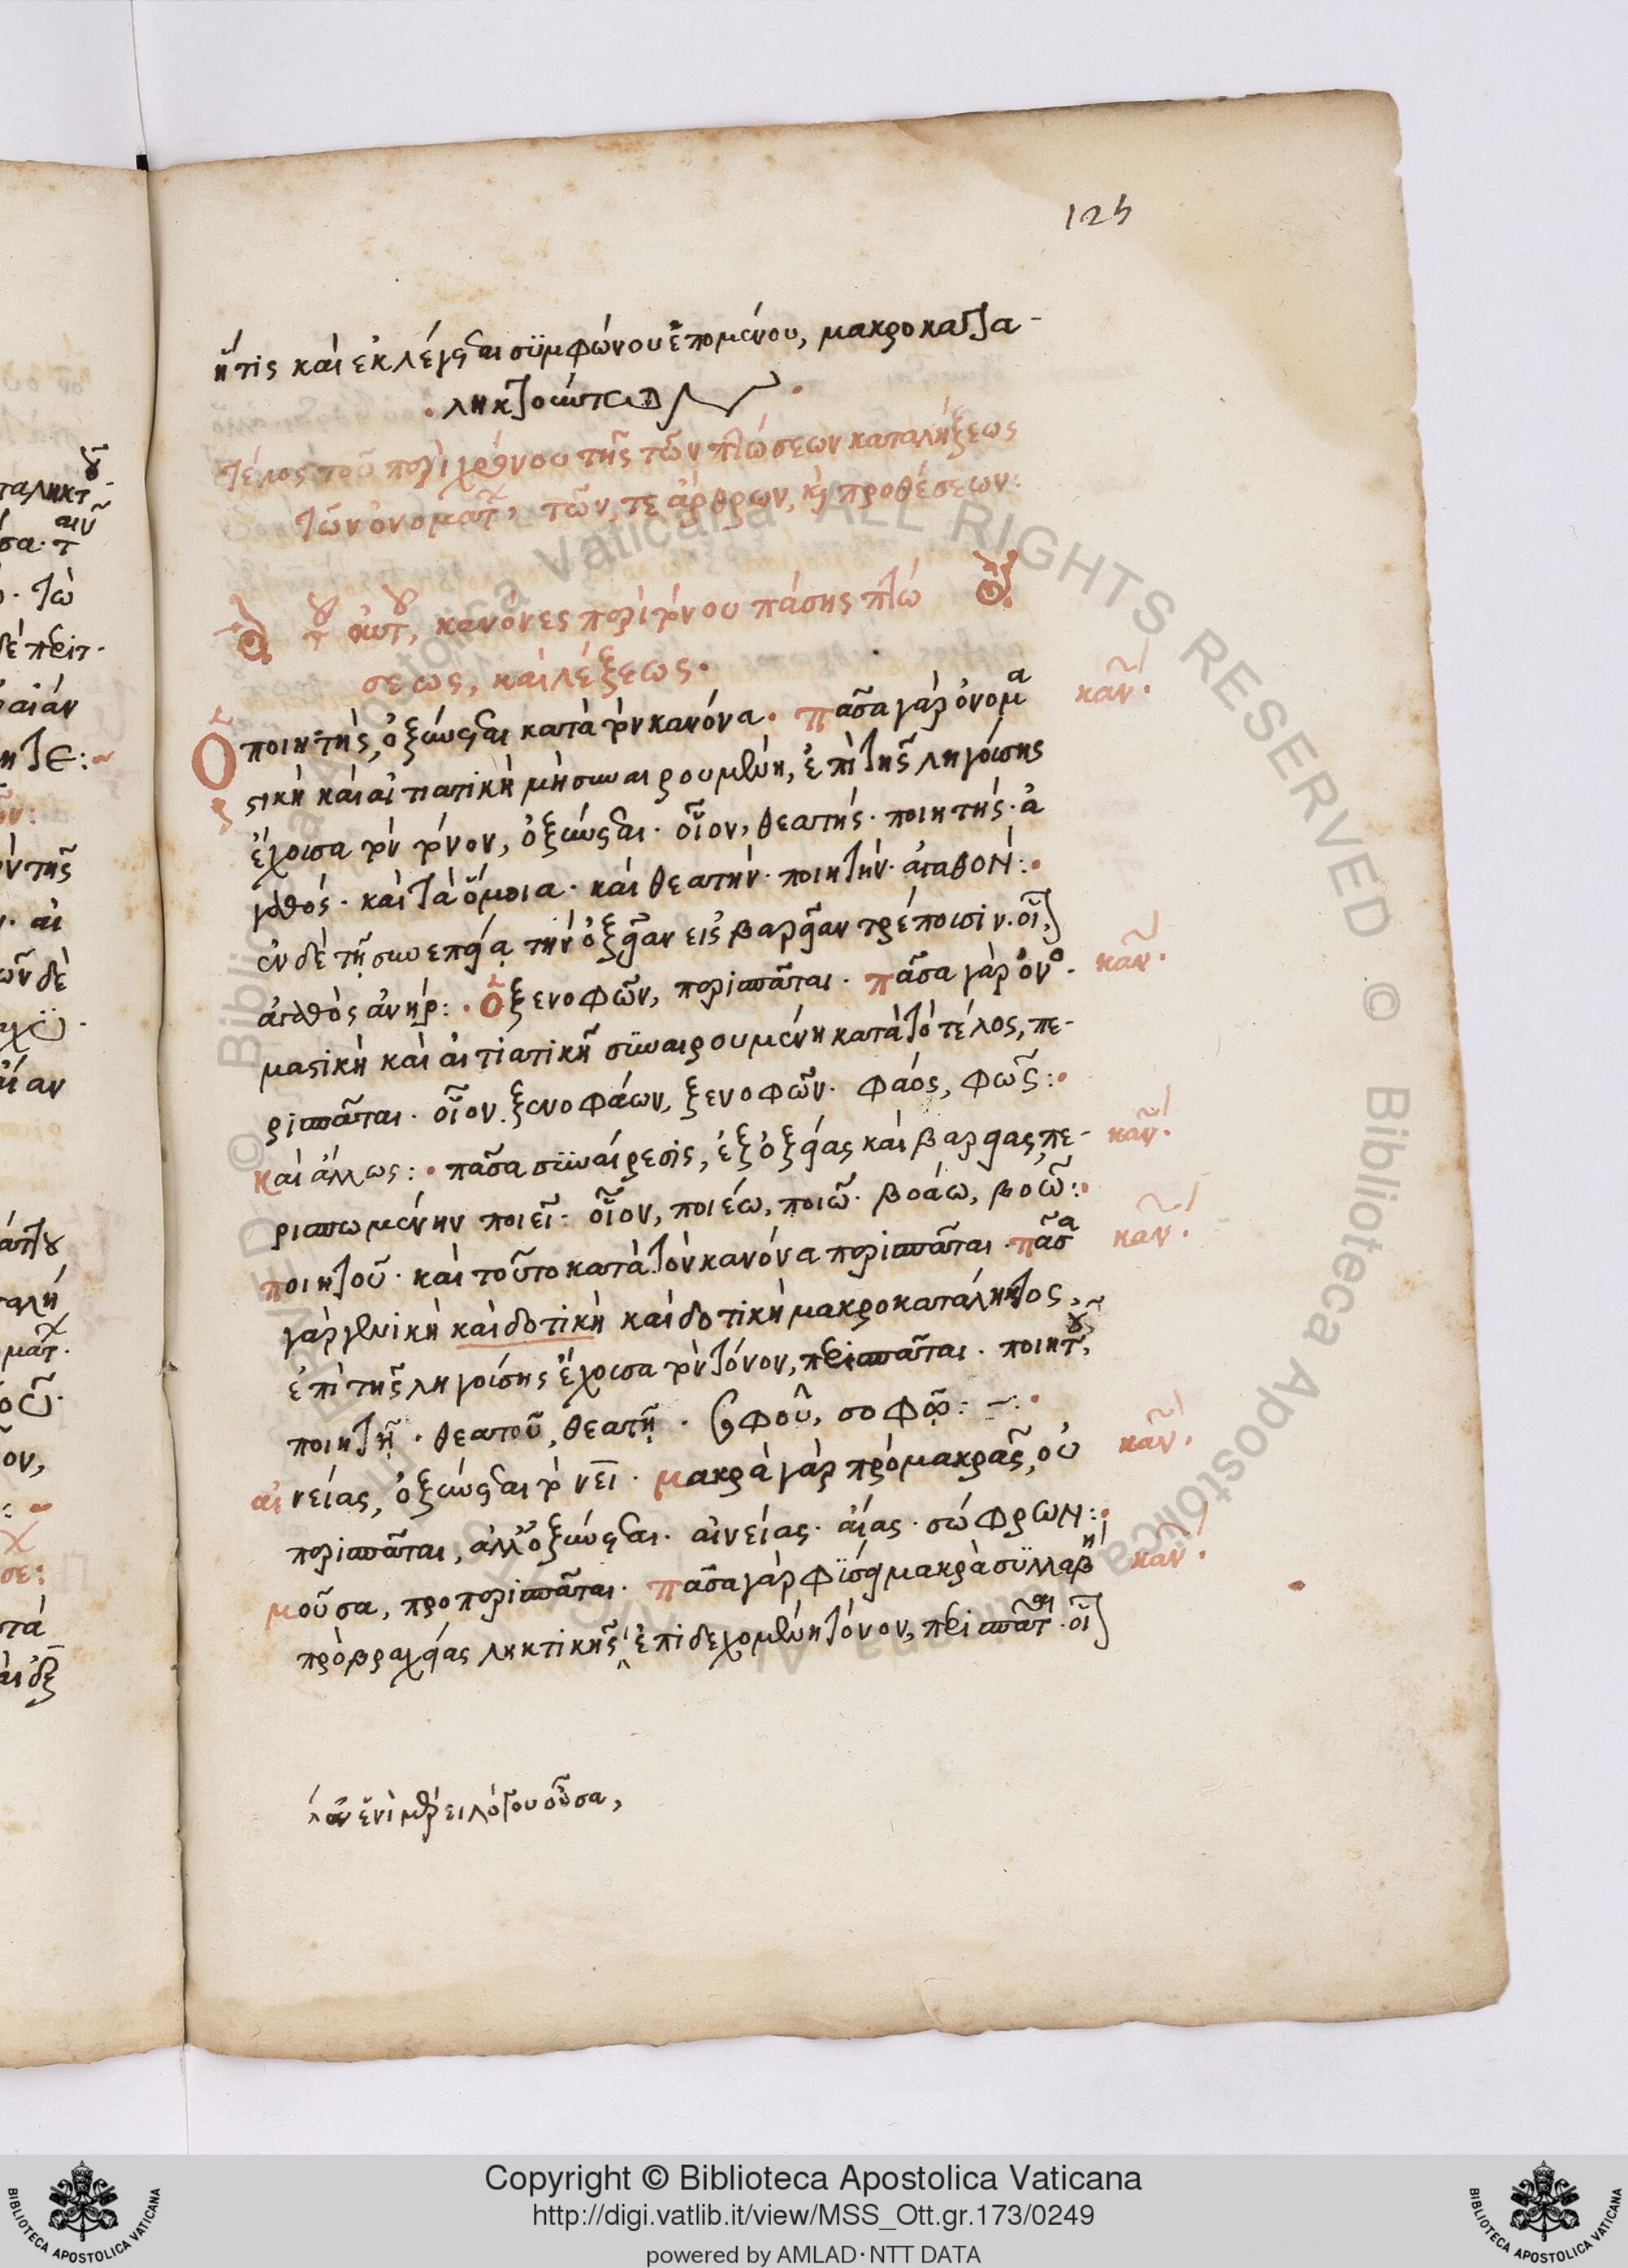 125
ἥτις καὶ ἐκλέγεται συμφώνου ἑπομένου, μακροκατα-
ληκτοῦσα
τέλος τοῦ περὶ χρόνου τῆς τῶν πτώσεων καταλήξεως
τῶν ὀνομάτ, τῶν τε ἄρθρων, καὶ προθέσεων:
τοῦ αὐτοῦ, κανόνες περὶ τόνου πάσης πτώ
σεως, καὶ λέξεως.
Ὁ ποιητὴς, ὀξύνεται κατὰ τὸν κανόνα. πᾶσα γὰρ ὀνομα
καν.
στικὴ καὶ αἰτιατικὴ μὴ συναιρουμένη, ἐπὶ τῆς ληγούσης
ἔχουσα τὸν τόνον, ὀξύνεται. οἷον, θεατής. ποιητής. ἀ
γαθός. καὶ τὰ ὅμοια. καὶ θεατήν. ποιητήν. ἀγαθόν:.
ἐν δὲ τῇ συνεπείᾳ τὴν ὀξεῖαν εἰς βαρεῖαν τρέπουσιν. οἷ
ἀγαθὸς ἀνήρ:. ὁ ξενοφῶν, περισπᾶται. πᾶσα γὰρ ὀνο-
καν.
μαστικὴ καὶ αἰτιατικὴ συναιρουμένη κατὰ τὸ τέλος, πε-
ρισπᾶται. οἷον ξενοφάων, ξενοφῶν. φάος, φῶς:.
καὶ ἄλλως:. πᾶσα συναίρεσις, ἐξ ὀξείας καὶ βαρείας, πε-
καν.
ρισπωμένην ποιεῖ: οἷον, ποιέω, ποιῶ. βοάω, βοῶ:.
ποιητοῦ. καὶ τοῦτο κατὰ τὸν κανόνα περισπᾶται. πᾶσα
καν.
γὰρ γενικὴ καὶ δοτικὴ καὶ δοτικὴ μακροκατάληκτος,
ἐπὶ τῆς ληγούσης ἔχουσα τὸν τόνον, περισπᾶται. ποιητοῦ,
ποιητῇ. θεατοῦ, θεατῇ. σοφοῦ, σοφῷ:
αἰνείας, ὀξύνεται τὸ νει. μακρὰ γὰρ πρὸ μακρᾶς, οὐ
καν.
περισπᾶται, ἀλλ' ὀξύνεται. αἰνείας. αἴας. σώφρων:.
μοῦσα, προπερισπᾶται. πᾶσα γὰρ φύσει μακρὰ συλλαβὴ
καν.
πρὸ βραχείας ληκτικῆς ἐπιδεχομένη τόνον, περισπᾶται. οἷ
ἐν ἑνὶ μέρει λόγου οὖσα,
Copyright © Biblioteca Apostolica Vaticana
http://digi.vatlib.it/view/MSS_Ott.gr.173/0249
powered by AMLAD·NTT DATA